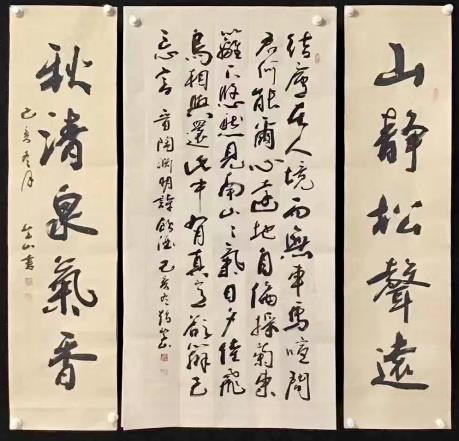 山静松聲遠
結廬在人境而無車馬喧問
君何能爾心遠地自偏採菊東
籬下悠然見南山々氣日夕佳飛
鳥相與還此中有真意欲辯已
忘言 晉陶淵明詩飲酒 己亥冬
秋清泉氣香
己亥冬月